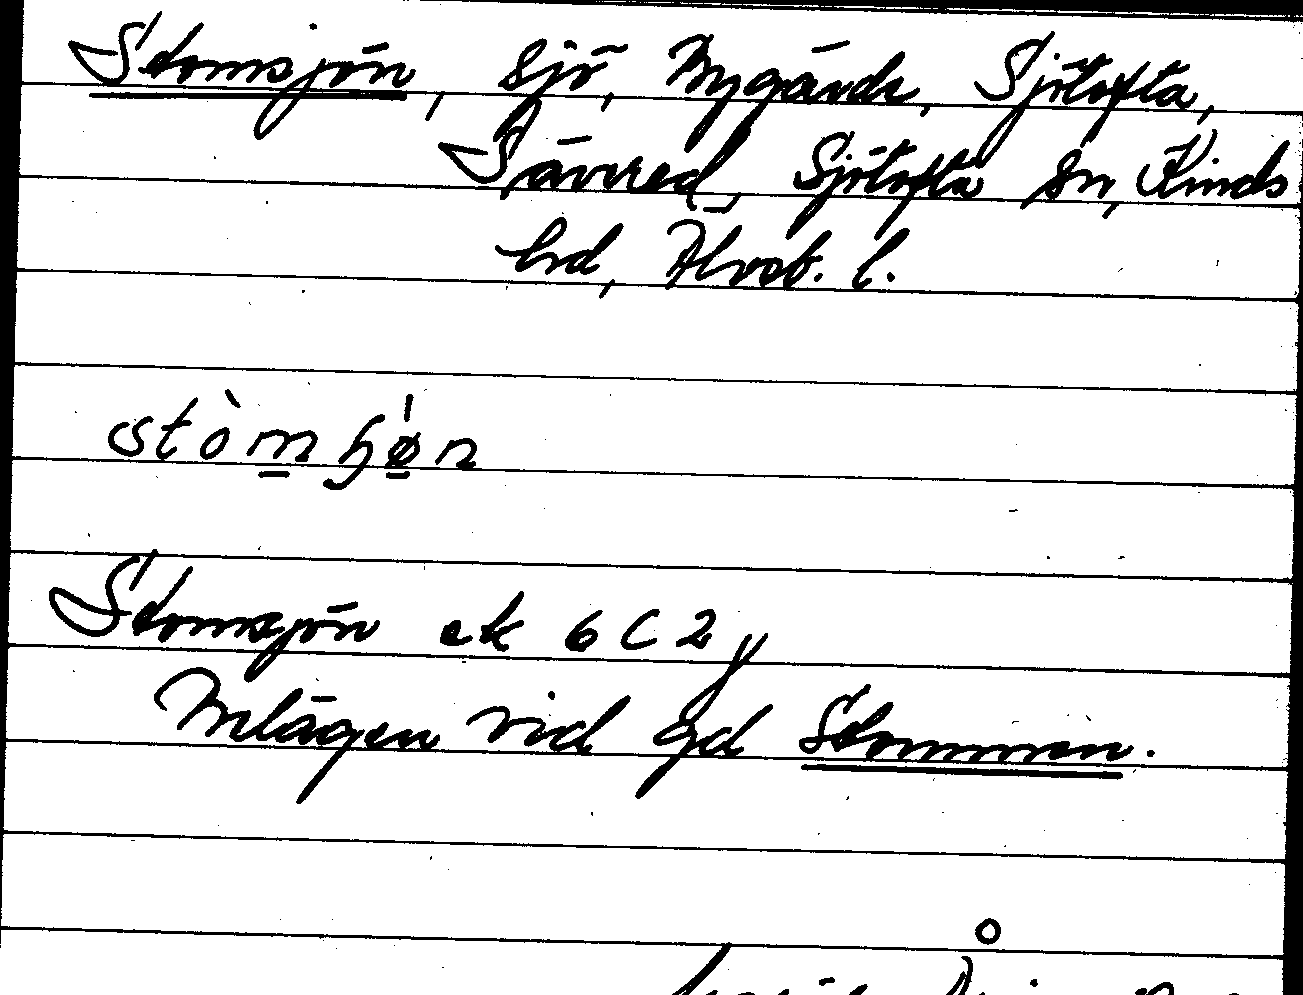 Stomsjön, sjö, Nygärde, Sjötofta,
Sävred, Sjötofta sn, Kinds
hd, Älvsb. l.
stòmʃøn
Stomsjön ek 6 C 2 y
Belägen vid gd Stommen.